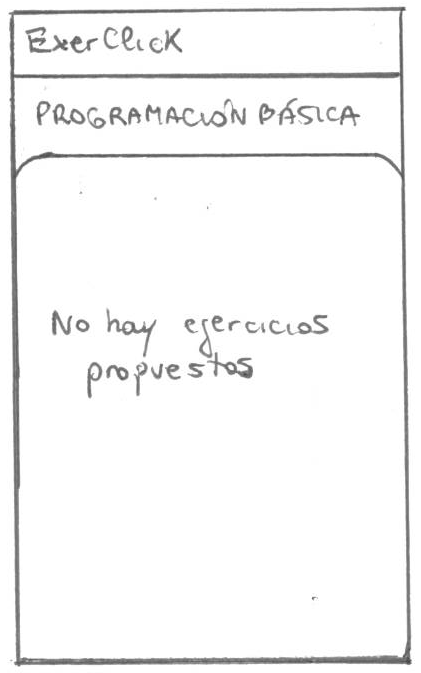 ExerClicK
PROGRAMACIÓN BÁSICA
No hay ejercicios
propuestos